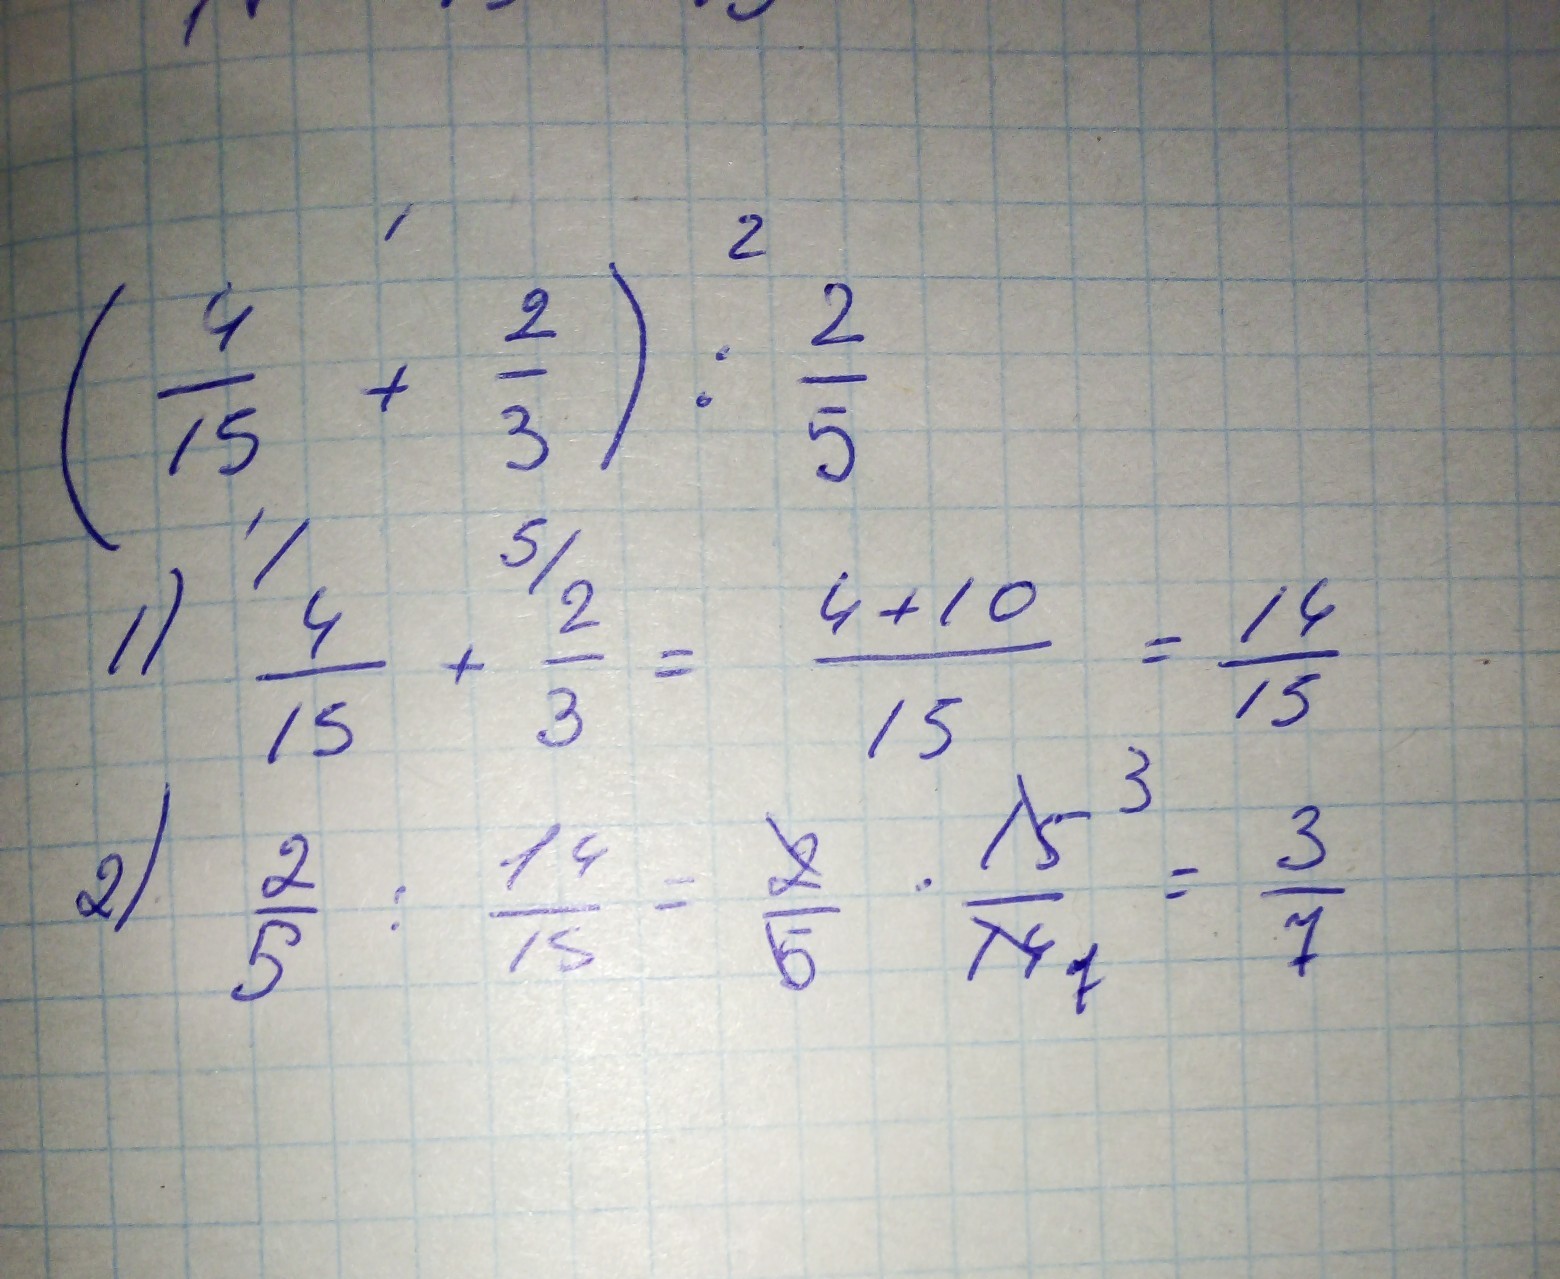 1 2
(4/15 + 2/3) : 2/5
1) 1/ 4/15 + 5/ 2/3 = 4+10/15 = 14/15
2) 2/5 : 14/15 = 2/5 · 15 3/14 7 = 3/7